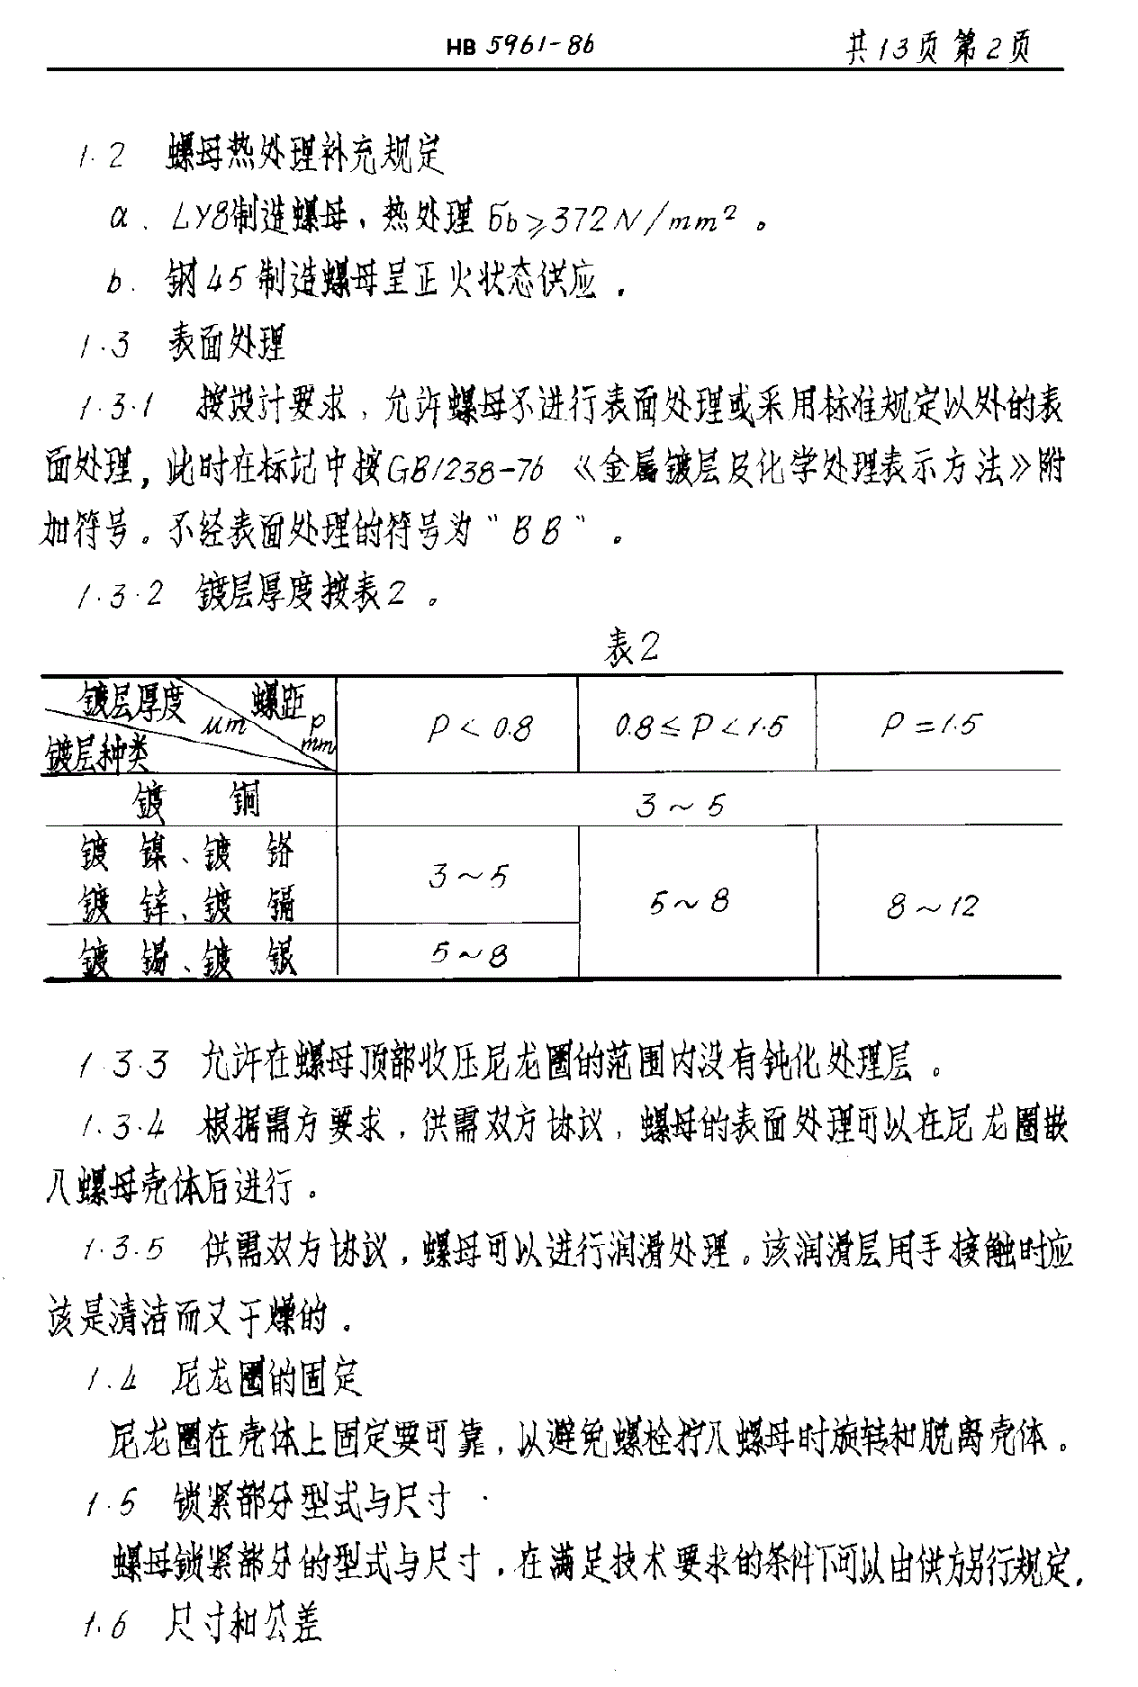 HB 5961-86 共13页 第2页
1.2 螺母热处理补充规定
a. LY8制造螺母，热处理 σb≥372N/mm²。
b. 钢45制造螺母呈正火状态供应．
1.3 表面处理
1.3.1 按设计要求，允许螺母不进行表面处理或采用标准规定以外的表
面处理，此时在标记中按GB1238-76《金属镀层及化学处理表示方法》附
加符号。不经表面处理的符号为"BB"。
1.3.2 镀层厚度按表2。
表2
镀层厚度 μm 螺距 P mm 镀层种类 P<0.8 0.8≤P<1.5 P=1.5
镀 铜 3～5
镀 镍、镀 铬 3～5 5～8 8～12
镀 锌、镀 镉
镀 锡、镀 银 5～8
1.3.3 允许在螺母顶部收压尼龙圈的范围内没有钝化处理层。
1.3.4 根据需方要求，供需双方协议，螺母的表面处理可以在尼龙圈嵌
入螺母壳体后进行。
1.3.5 供需双方协议，螺母可以进行润滑处理。该润滑层用手接触时应
该是清洁而又干燥的．
1.4 尼龙圈的固定
尼龙圈在壳体上固定要可靠，以避免螺栓拧入螺母时旋转和脱离壳体。
1.5 锁紧部分型式与尺寸
螺母锁紧部分的型式与尺寸，在满足技术要求的条件下可以由供方另行规定．
1.6 尺寸和公差